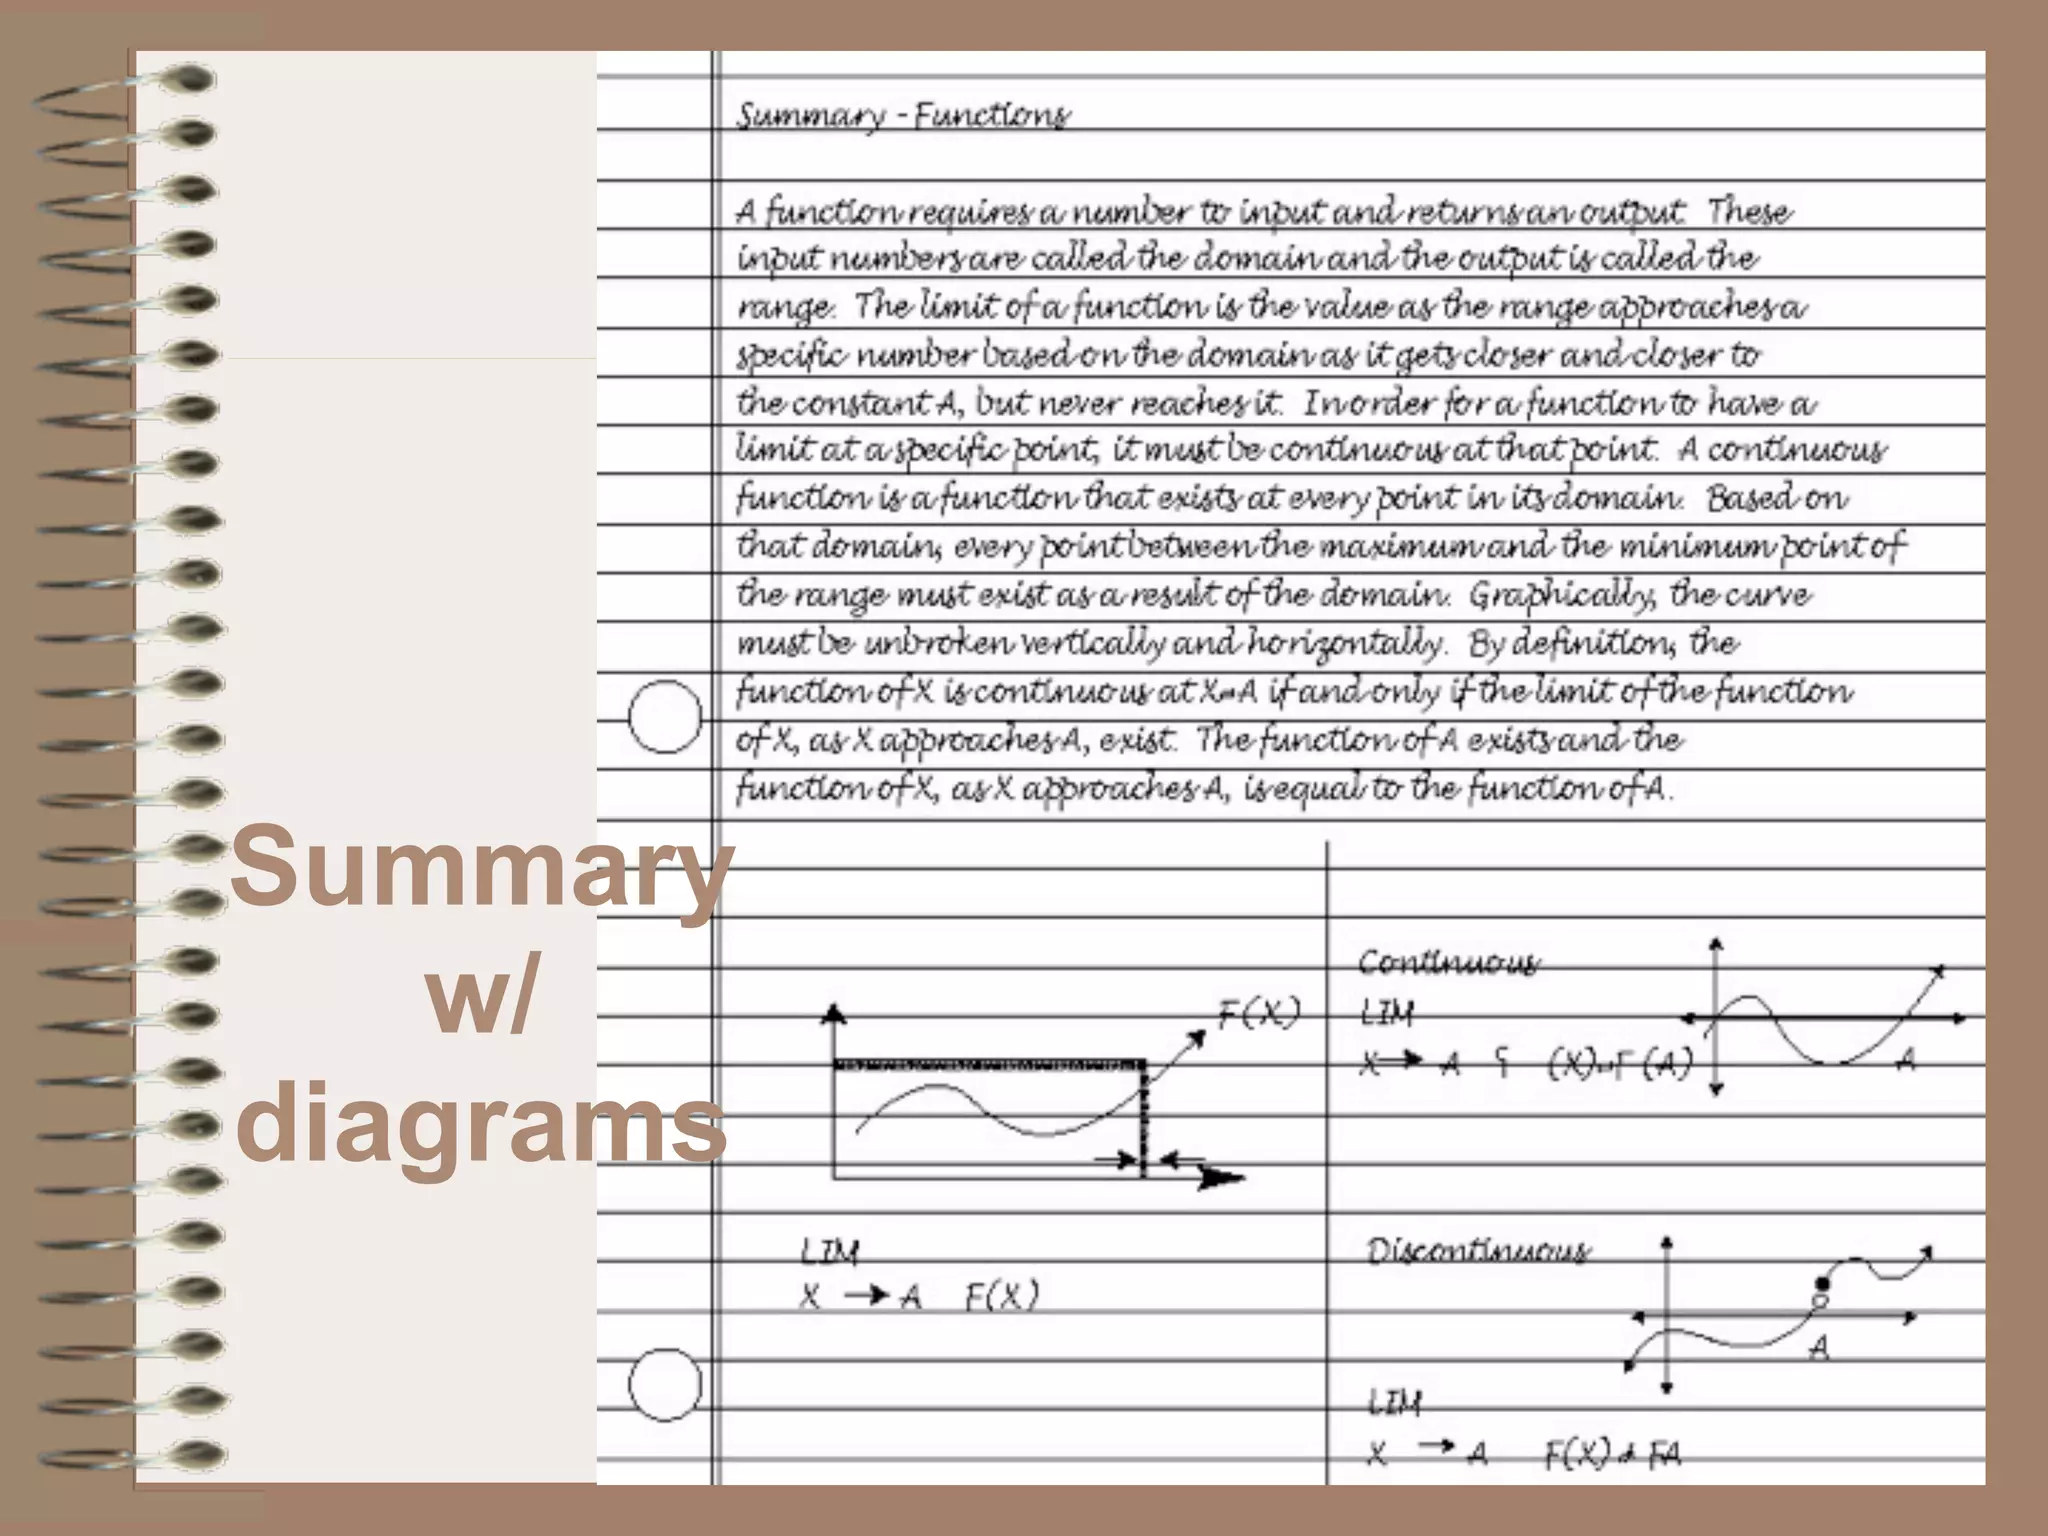 Summary
w/
diagrams
Summary - Functions
A function requires a number to input and returns an output. These
input numbers are called the domain and the output is called the
range. The limit of a function is the value as the range approaches a
specific number based on the domain as it gets closer and closer to
the constant A, but never reaches it. In order for a function to have a
limit at a specific point, it must be continuous at that point. A continuous
function is a function that exists at every point in its domain. Based on
that domain, every point between the maximum and the minimum point of
the range must exist as a result of the domain. Graphically, the curve
must be unbroken vertically and horizontally. By definition, the
function of X is continuous at X=A if and only if the limit of the function
of X, as X approaches A, exist. The function of A exists and the
function of X, as X approaches A, is equal to the function of A.
F(X)
LIM
X → A F(X)
Continuous
LIM
X → A (X) (A)
A
Discontinuous
A
LIM
X → A F(X) FA